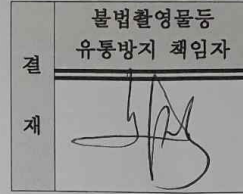 결재
불법촬영물등
유통방지 책임자